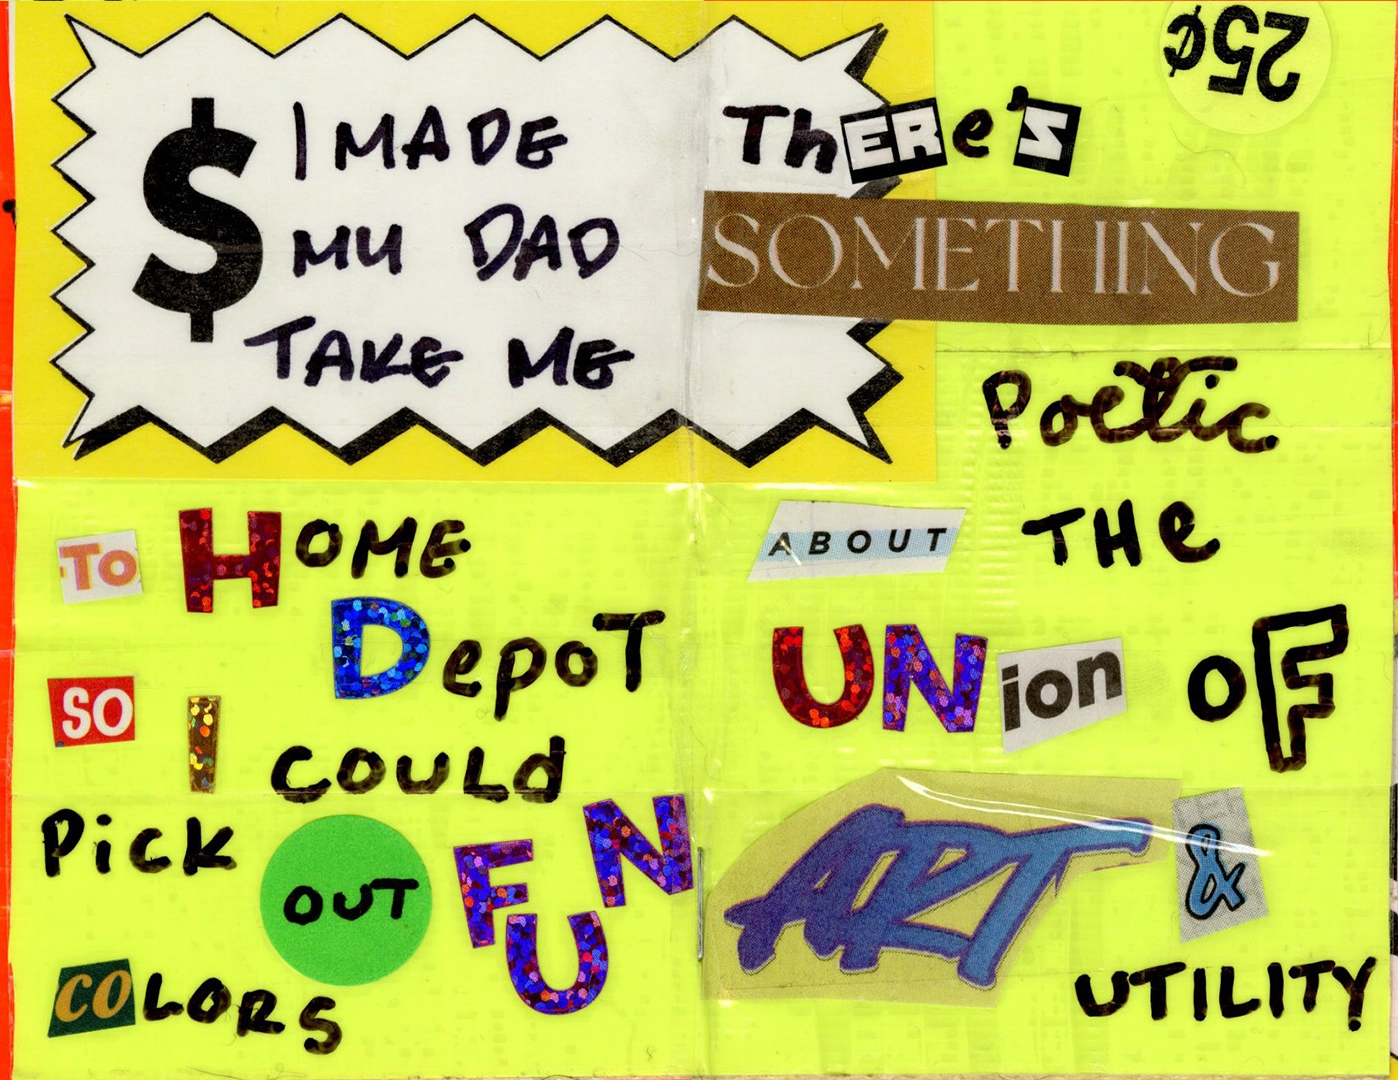 $ I MADE
MY DAD
TAKE ME
To HOME
DepoT
SO I COULd
Pick OUT FUN
COLORS
25¢
ThERe'S
SOMETHING
Poetic
ABOUT THe
UNion OF
ART &
UTILITY